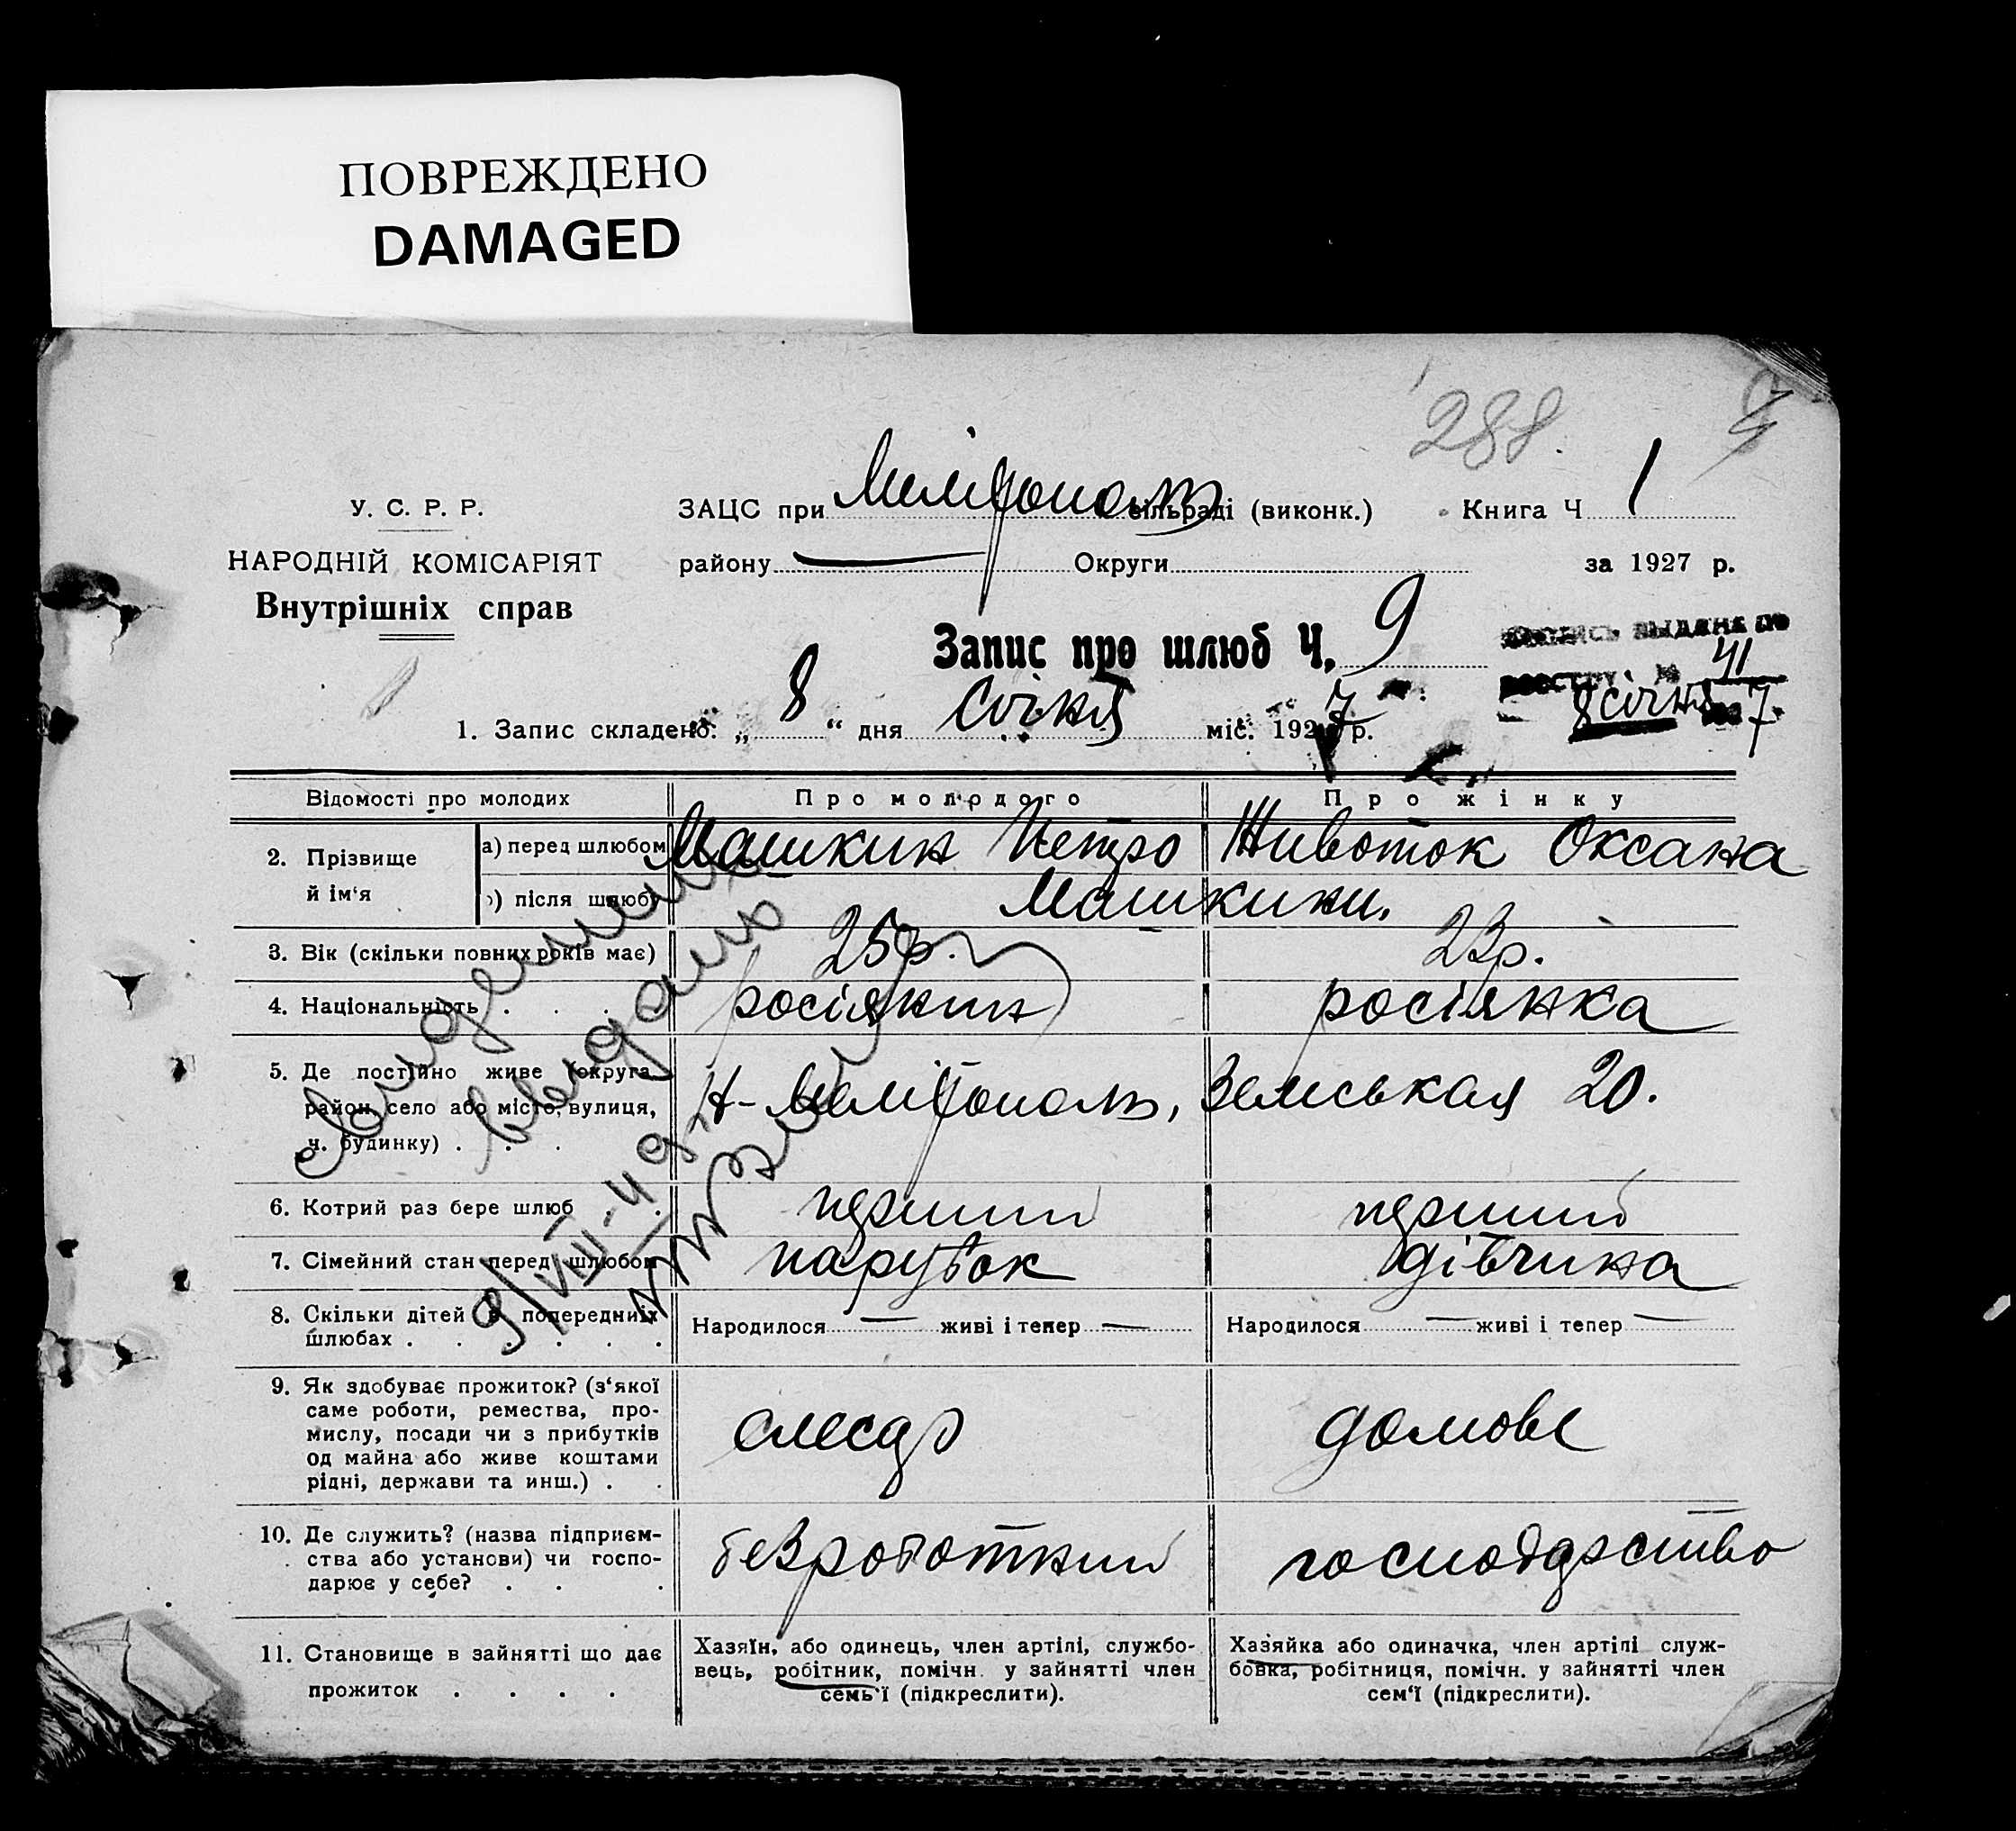 ПОВРЕЖДЕНО
DAMAGED
288
У. С. Р. Р.
НАРОДНІЙ КОМІСАРІЯТ
Внутрішніх справ
ЗАЦС при Мелітополь сільраді (виконк.) Книга Ч 1
району — Округи за 1927 р.
Запис про шлюб Ч. 9
выдана по
реестру № 41
8 січня 7
1. Запис складено: „ 8 “ дня Січня міс. 1927 р.
Відомості про молодих Про молодого Про жінку
2. Прізвище й ім‘я
а) перед шлюбом Машкин Петро Животок Оксана
б) після шлюбу Машкини.
3. Вік (скільки повних років має) 25 р. 23 р.
4. Національність . . . росіянин росіянка
5. Де постійно живе (округа,
район, село або місто, вулиця,
ч. будинку) . . . Н-Мелітополь, Земськая 20.
6. Котрий раз бере шлюб . . перший перший
7. Сімейний стан перед шлюбом парубок дівчина
8. Скільки дітей в попередніх
шлюбах . . . . . . Народилося — живі і тепер — Народилося — живі і тепер —
9. Як здобуває прожиток? (з‘якої
саме роботи, ремества, про-
мислу, посади чи з прибутків
од майна або живе коштами
рідні, держави та инш.) . . слесар домове
10. Де служить? (назва підприєм-
ства або установи) чи госпо-
дарює у себе? . . . безроботний господарство
11. Становище в зайнятті що дає
прожиток . . . .
Хазяїн, або одинець, член артілі, службо-
вець, робітник, помічн. у зайнятті член
семь‘ї (підкреслити).
Хазяйка або одиначка, член артілі служ-
бовка, робітниця, помічн. у зайнятті член
сем‘ї (підкреслити).
выдано
9/VIII-49 г.